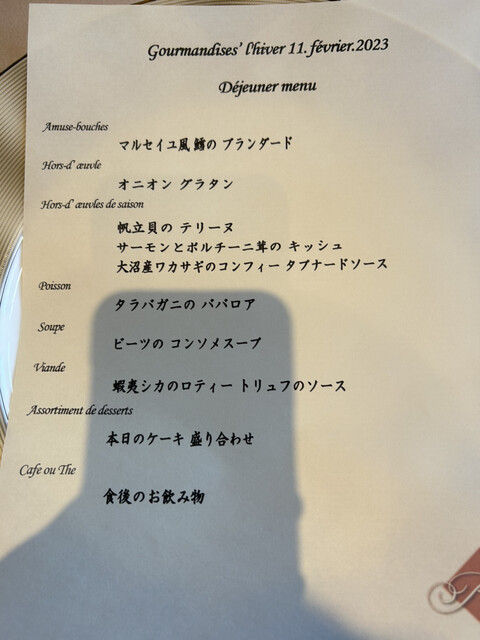 Gourmandises' l'hiver 11. février.2023
Déjeuner menu
Amuse-bouches
マルセイユ風 鱈の ブランダード
Hors-d' œuvle
オニオン グラタン
Hors-d' œuvles de saison
帆立貝の テリーヌ
サーモンとポルチーニ茸の キッシュ
大沼産ワカサギのコンフィー タプナードソース
Poisson
タラバガニの ババロア
Soupe
ビーツの コンソメスープ
Viande
蝦夷シカのロティー トリュフのソース
Assortiment de desserts
本日のケーキ 盛り合わせ
Cafe ou The
食後のお飲み物